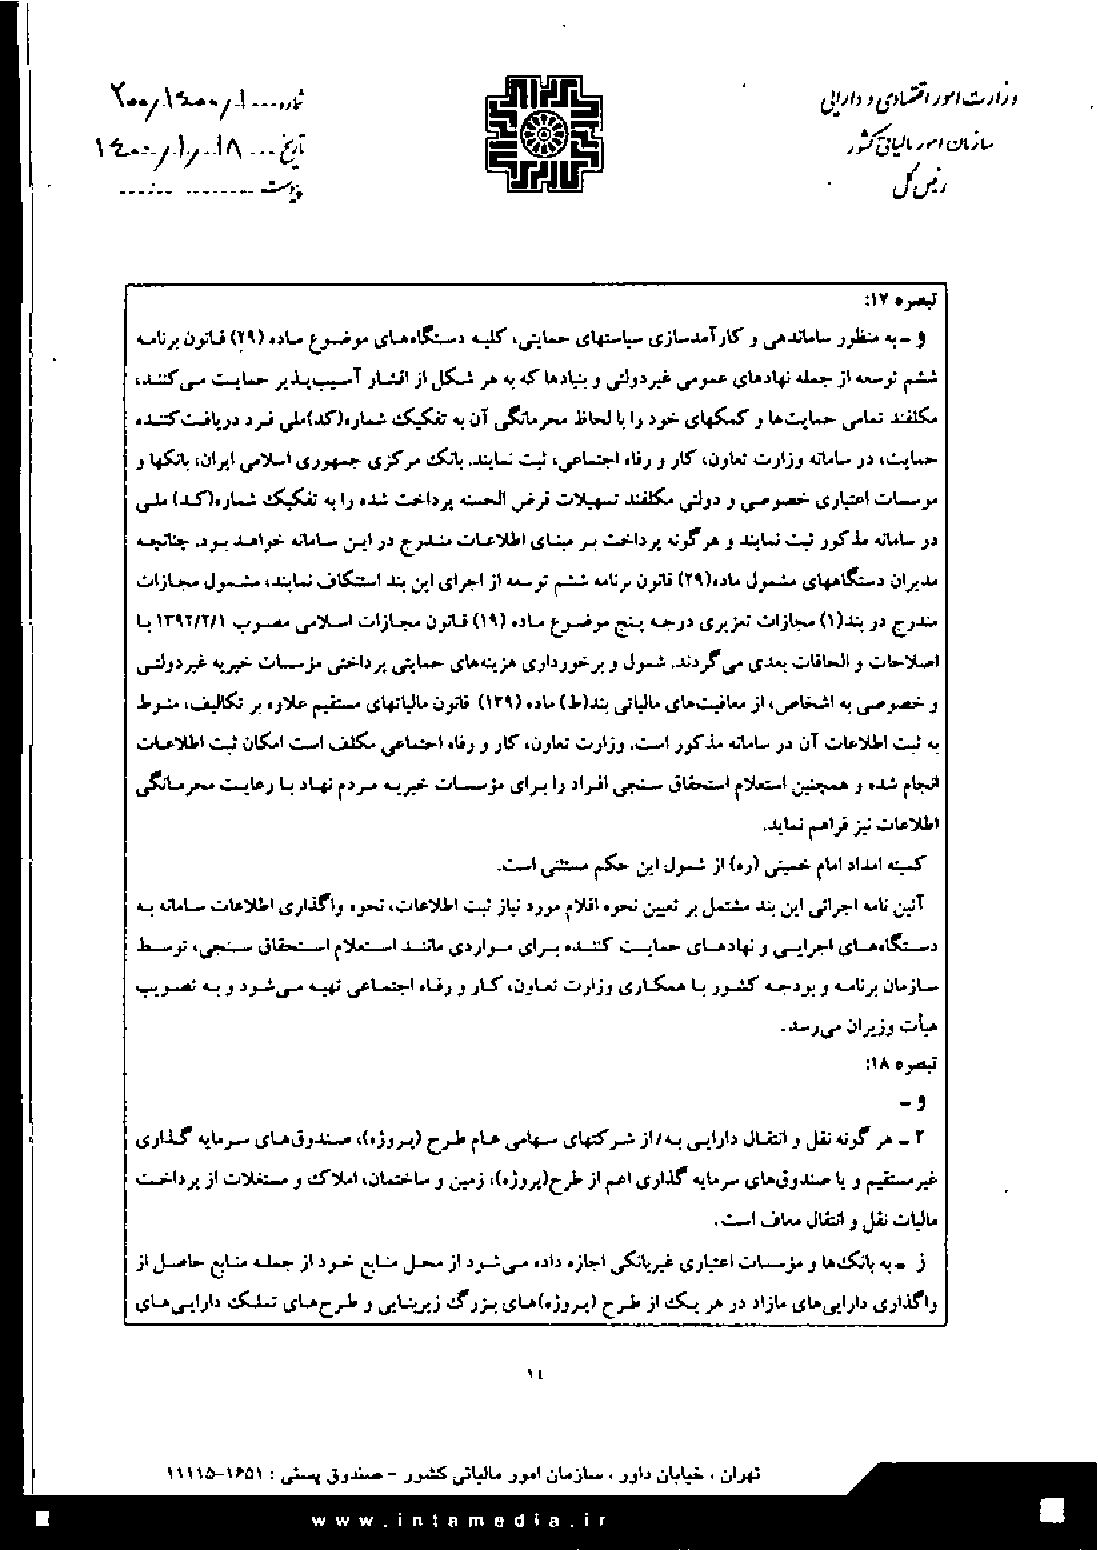 وزارت امور اقتصادی و دارایی
سازمان امور مالیاتی کشور
رئیس کل
شماره ۲۰۰/۱۴۰۰/۱
تاریخ ۱۴۰۰/۱/۱۸
پیوست
تبصره ۱۷:
و - به منظور ساماندهی و کارآمدسازی سیاستهای حمایتی، کلیه دستگاه‌های موضوع ماده (۲۹) قانون برنامه
ششم توسعه از جمله نهادهای عمومی غیردولتی و بنیادها که به هر شکل از اقشار آسیب‌پذیر حمایت می‌کنند،
مکلفند تمامی حمایت‌ها و کمکهای خود را با لحاظ محرمانگی آن به تفکیک شماره(کد)ملی فرد دریافت‌کننده
حمایت، در سامانه وزارت تعاون، کار و رفاه اجتماعی، ثبت نمایند. بانک مرکزی جمهوری اسلامی ایران، بانکها و
موسسات اعتباری خصوصی و دولتی مکلفند تسهیلات قرض الحسنه پرداخت شده را به تفکیک شماره(کد) ملی
در سامانه مذکور ثبت نمایند و هرگونه پرداخت بر مبنای اطلاعات مندرج در این سامانه خواهد بود. چنانچه
مدیران دستگاههای مشمول ماده(۲۹) قانون برنامه ششم توسعه از اجرای این بند استنکاف نمایند، مشمول مجازات
مندرج در بند(۱) مجازات تعزیری درجه پنج موضوع ماده (۱۹) قانون مجازات اسلامی مصوب ۱۳۹۲/۲/۱ با
اصلاحات و الحاقات بعدی می‌گردند. شمول و برخورداری هزینه‌های حمایتی پرداختی مؤسسات خیریه غیردولتی
و خصوصی به اشخاص، از معافیت‌های مالیاتی بند(ط) ماده (۱۳۹) قانون مالیاتهای مستقیم علاوه بر تکالیف، منوط
به ثبت اطلاعات آن در سامانه مذکور است. وزارت تعاون، کار و رفاه اجتماعی مکلف است امکان ثبت اطلاعات
انجام شده و همچنین استعلام استحقاق سنجی افراد را برای مؤسسات خیریه مردم نهاد با رعایت محرمانگی
اطلاعات نیز فراهم نماید.
کمیته امداد امام خمینی (ره) از شمول این حکم مستثنی است.
آئین نامه اجرائی این بند مشتمل بر تعیین نحوه اقلام مورد نیاز ثبت اطلاعات، نحوه واگذاری اطلاعات سامانه به
دستگاه‌های اجرایی و نهادهای حمایت کننده برای مواردی مانند استعلام استحقاق سنجی، توسط
سازمان برنامه و بودجه کشور با همکاری وزارت تعاون، کار و رفاه اجتماعی تهیه می‌شود و به تصویب
هیأت وزیران می‌رسد.
تبصره ۱۸:
و -
۲ - هر گونه نقل و انتقال دارایی به/ از شرکتهای سهامی عام طرح (پروژه)، صندوق‌های سرمایه گذاری
غیرمستقیم و یا صندوق‌های سرمایه گذاری اعم از طرح(پروژه)، زمین و ساختمان، املاک و مستغلات از پرداخت
مالیات نقل و انتقال معاف است.
ز - به بانک‌ها و مؤسسات اعتباری غیربانکی اجازه داده می‌شود از محل منابع خود از جمله منابع حاصل از
واگذاری دارایی‌های مازاد در هر یک از طرح (پروژه)های بزرگ زیربنایی و طرح‌های تملک دارایی‌های
۱۴
تهران ، خیابان داور ، سازمان امور مالیاتی کشور - صندوق پستی : ۱۶۵۱-۱۱۱۱۵
www.intamedia.ir